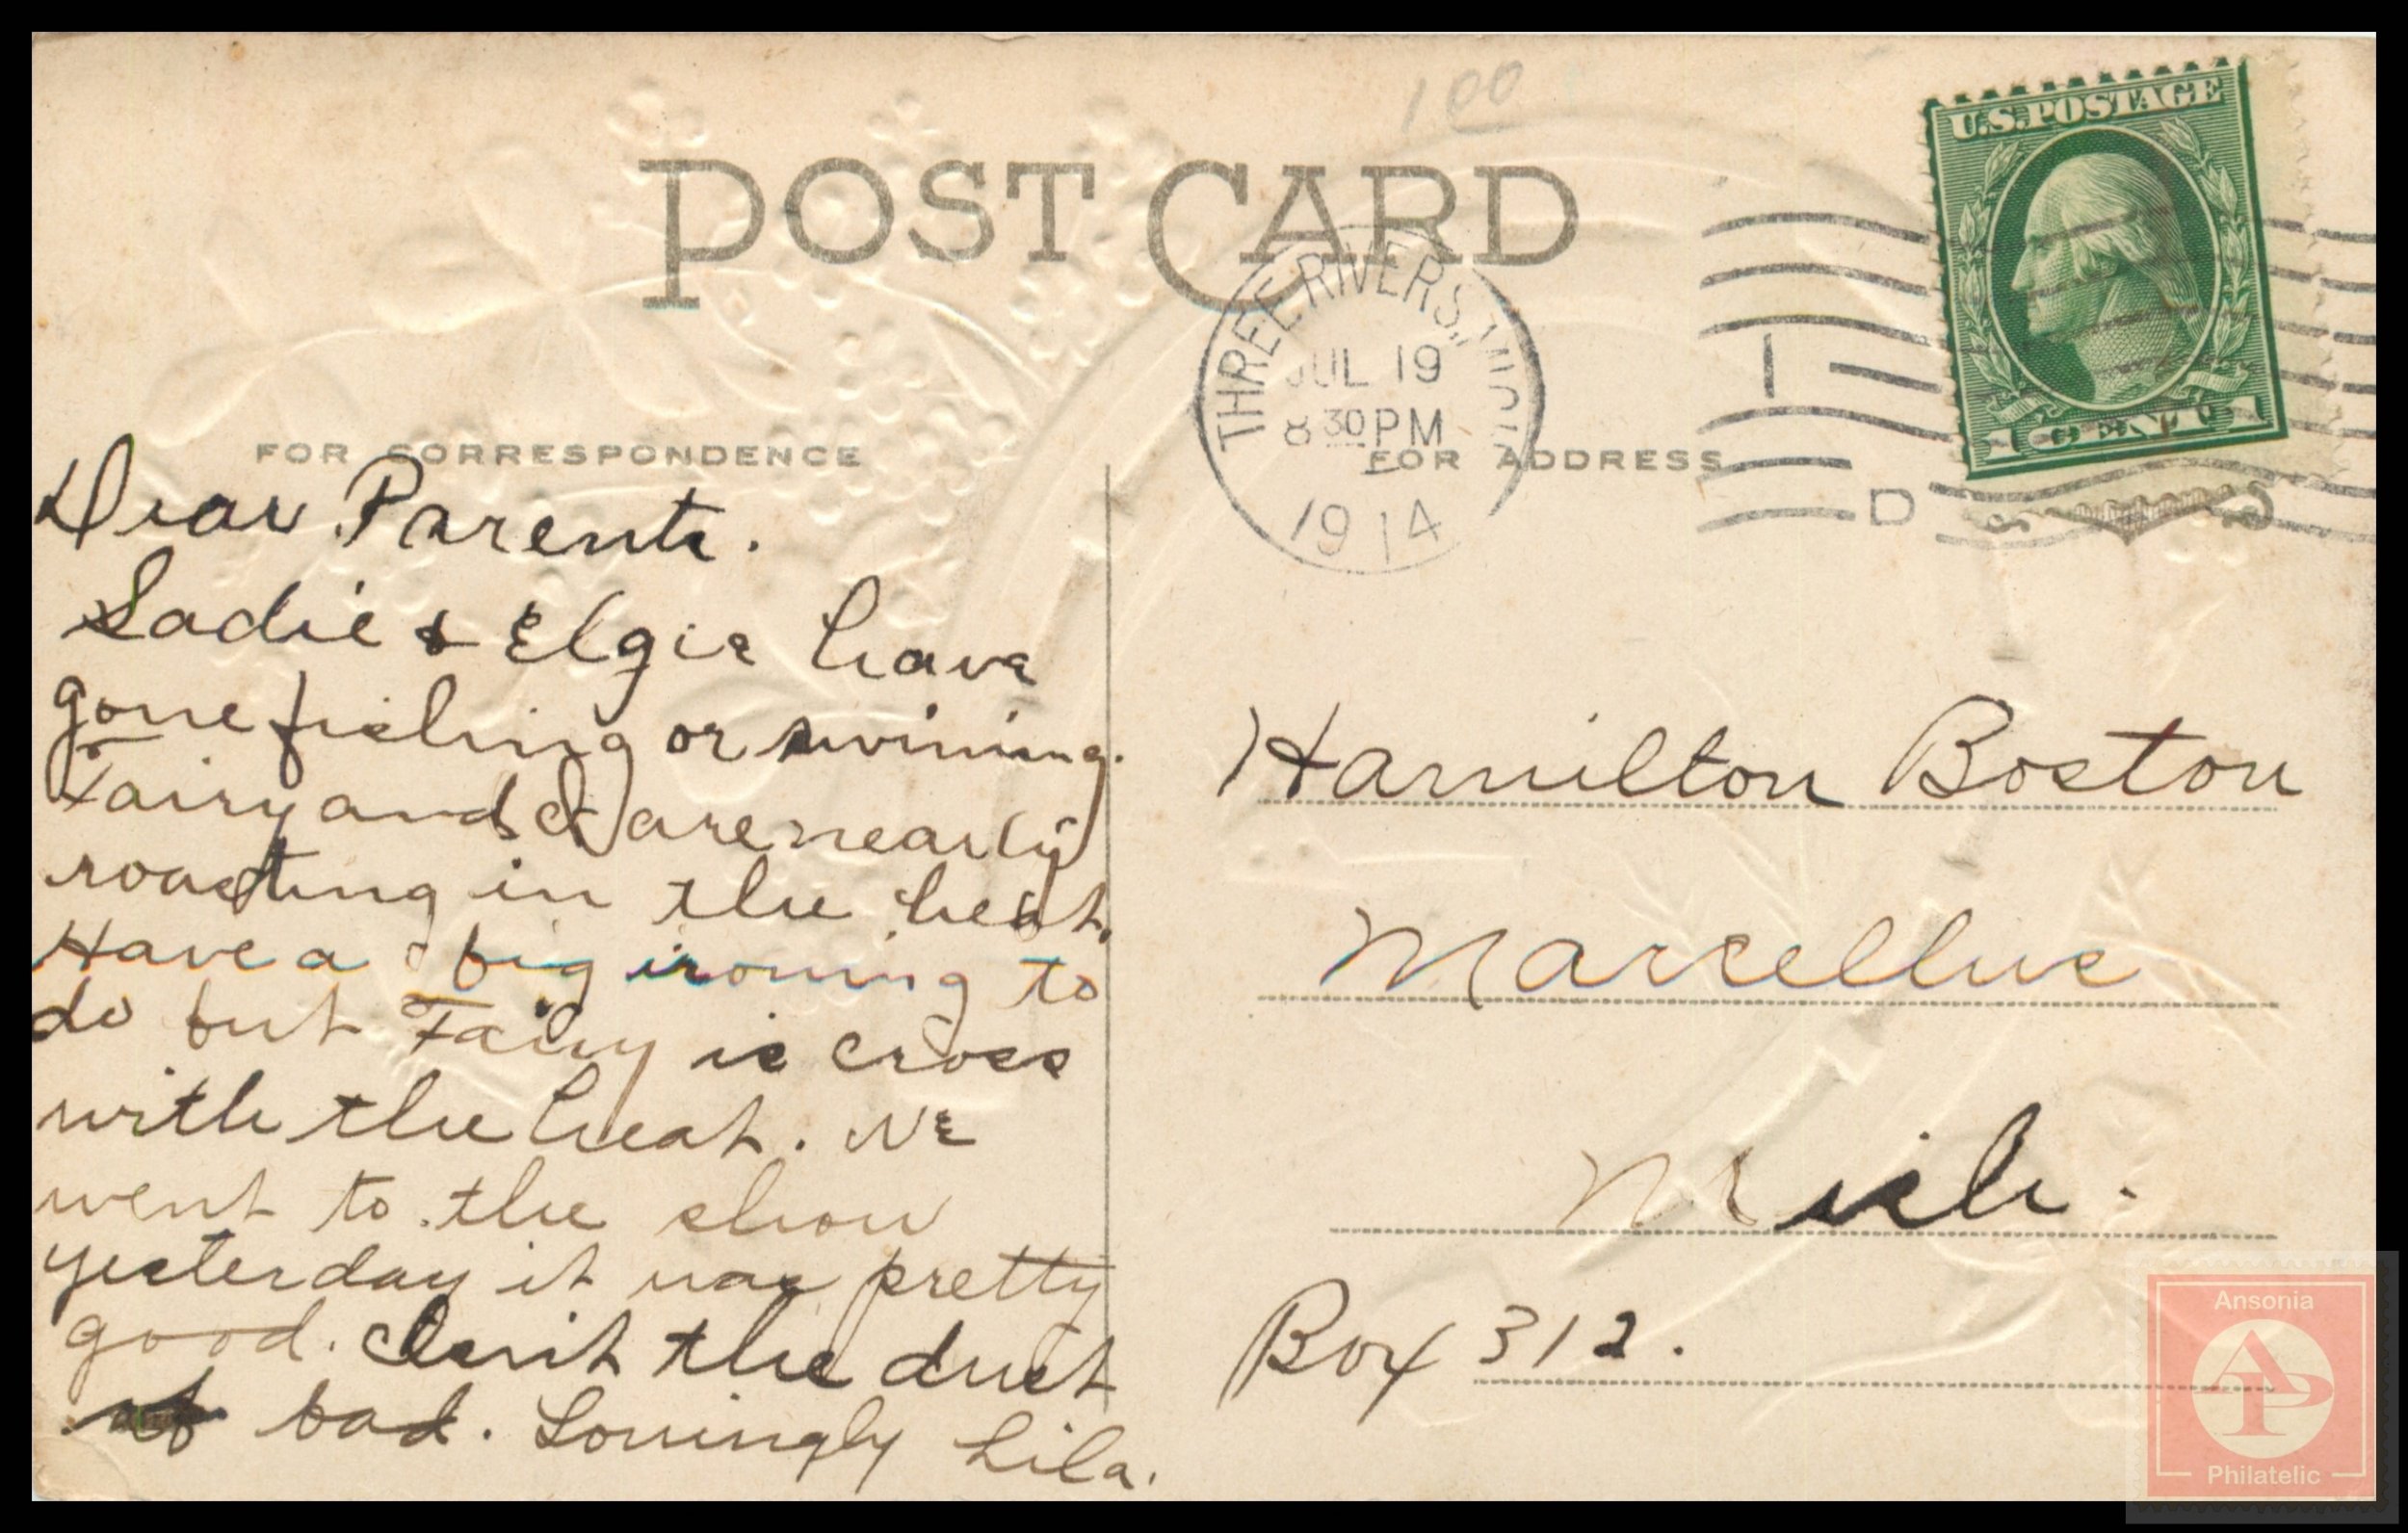 100
U.S.POSTAGE
POST CARD
THREE RIVERS, MICH
JUL 19
8 30 PM
1914
1
D
FOR CORRESPONDENCE
FOR ADDRESS
Dear Parents.
Sadie & Elgie have
gone fishing or swiming.
Fairy and I are nearly
roasting in the heat.
Have a big ironing to
do but Fairy is cross
with the heat. We
went to the show
yesterday it was pretty
good. Isn't the dust
bad. Lovingly Lila.
Hamilton Boston
Marcellus
Mich.
Box 312.
Ansonia
AP
Philatelic